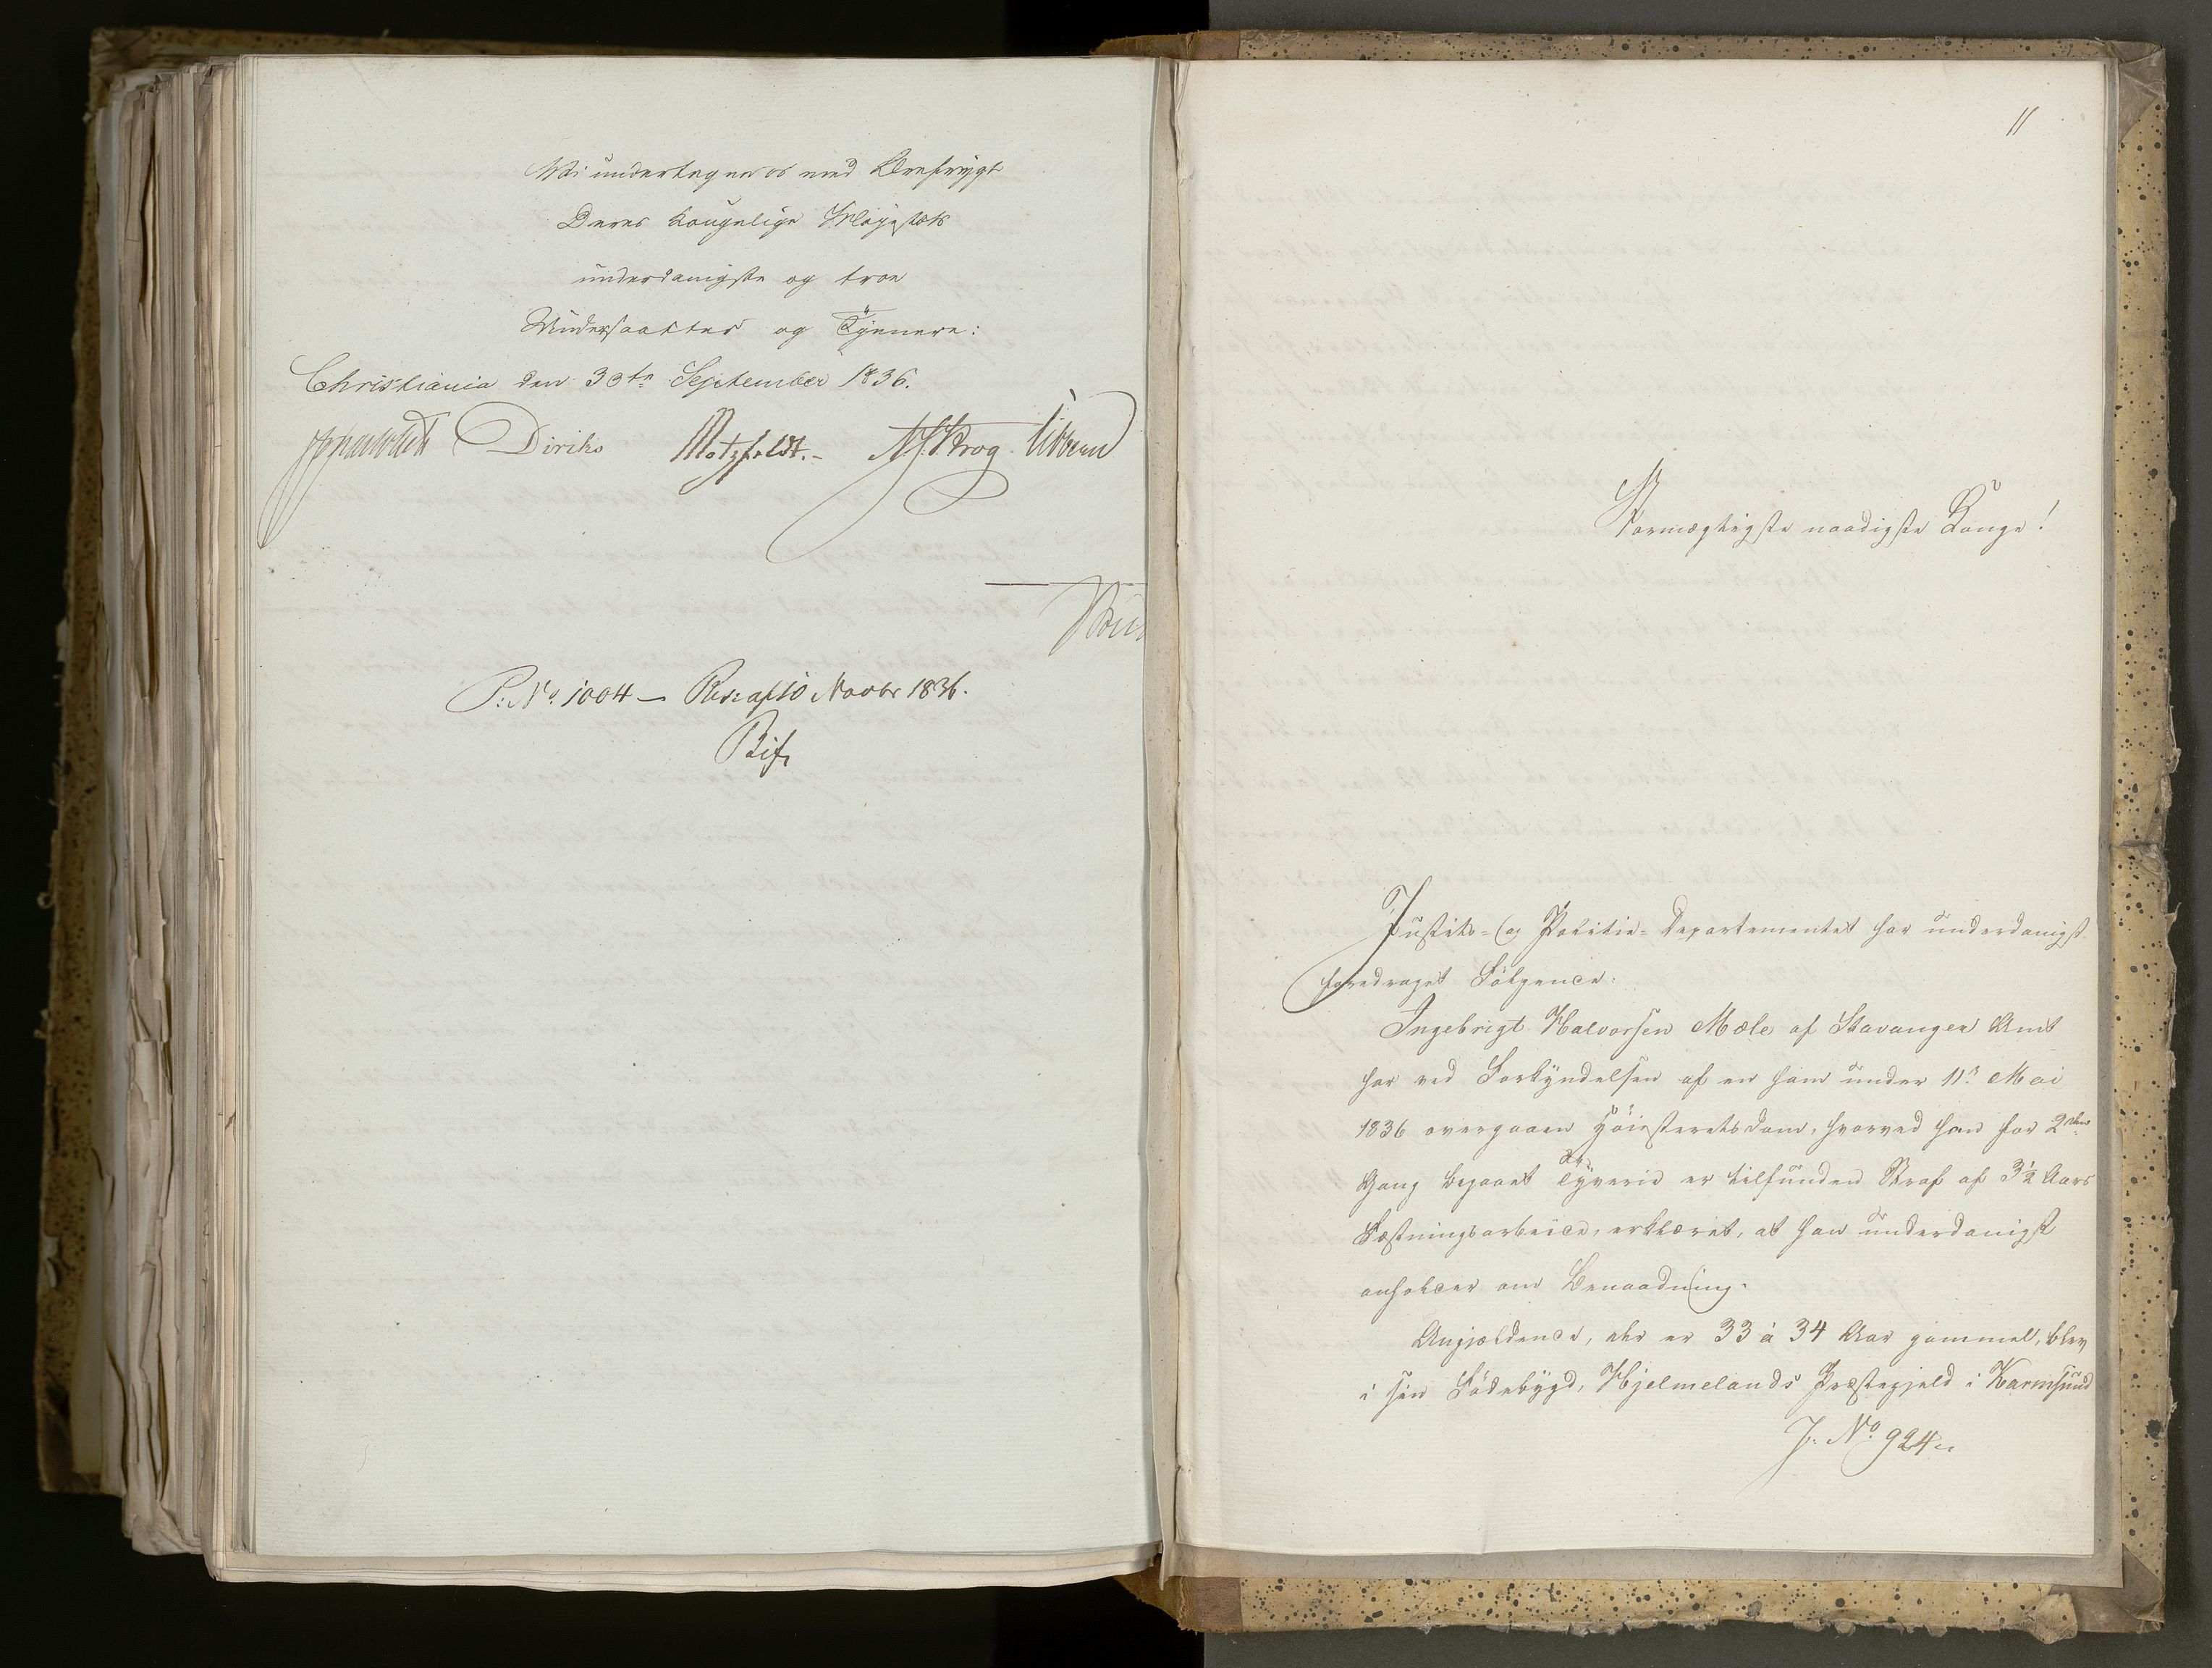 Vi undertegne os med Ærefrygt
Deres Kongelige Majestæts
underdanigste og troe
Undersaatter og Tjenere:
Christiania den 30te September 1836.
Diriks Motzfeldt.- Krog
P: No. 1004 — Res: af 10 Novbr 1836.
11
Stormægtigste naadigste Konge!
Justits- og Politie-Departementet har underdanigst
foredraget Følgende:
Ingebrigt Halvorsen Mæle af Stavanger Amt
har ved Forkyndelsen af en ham under 11te Mai
1836 overgaaen Høiesteretsdom, hvorved han for 2den
Gang begaaet Tyverie er tilfunden Straf af 3½ Aars
Fæstningsarbeide, erklæret, at han underdanigst
anholder om Benaadning.
Angjældende, der er 33 à 34 Aar gammel, blev
i sin Fødebygd, Hjelmelands Præstegjeld i Karmsund
J: No. 924